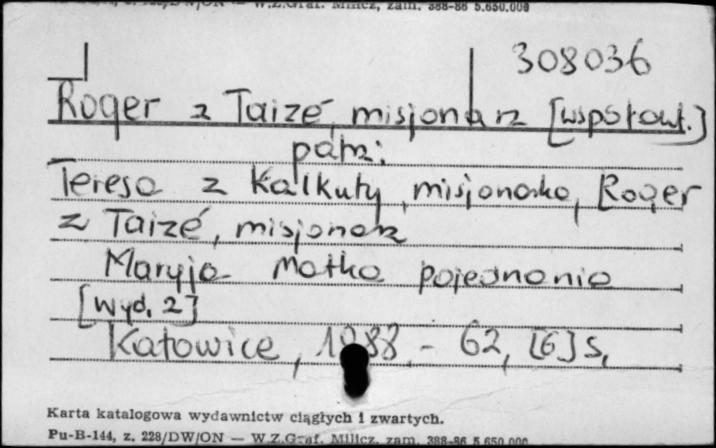 W.Z.Graf. Milicz, zam. 388-86 5.650.000
308036
Roger z Taizé, misjonarz [współaut.]
patrz:
Teresa z Kalkuty, misjonarka, Roger
z Taizé, misjonarz
Maryja Matka pojednania
[Wyd. 2]
Katowice, 1988. - 62, [6] s.
Karta katalogowa wydawnictw ciągłych i zwartych.
Pu-B-144, z. 228/DW/ON — W.Z.Graf. Milicz, zam. 388-86 5.650.000